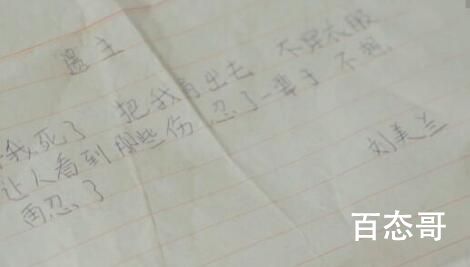 遗主
我死了 把我出去 不穿衣服
让人看到那些伤 忍了一辈子 不想
再忍了
刘美兰
百态哥